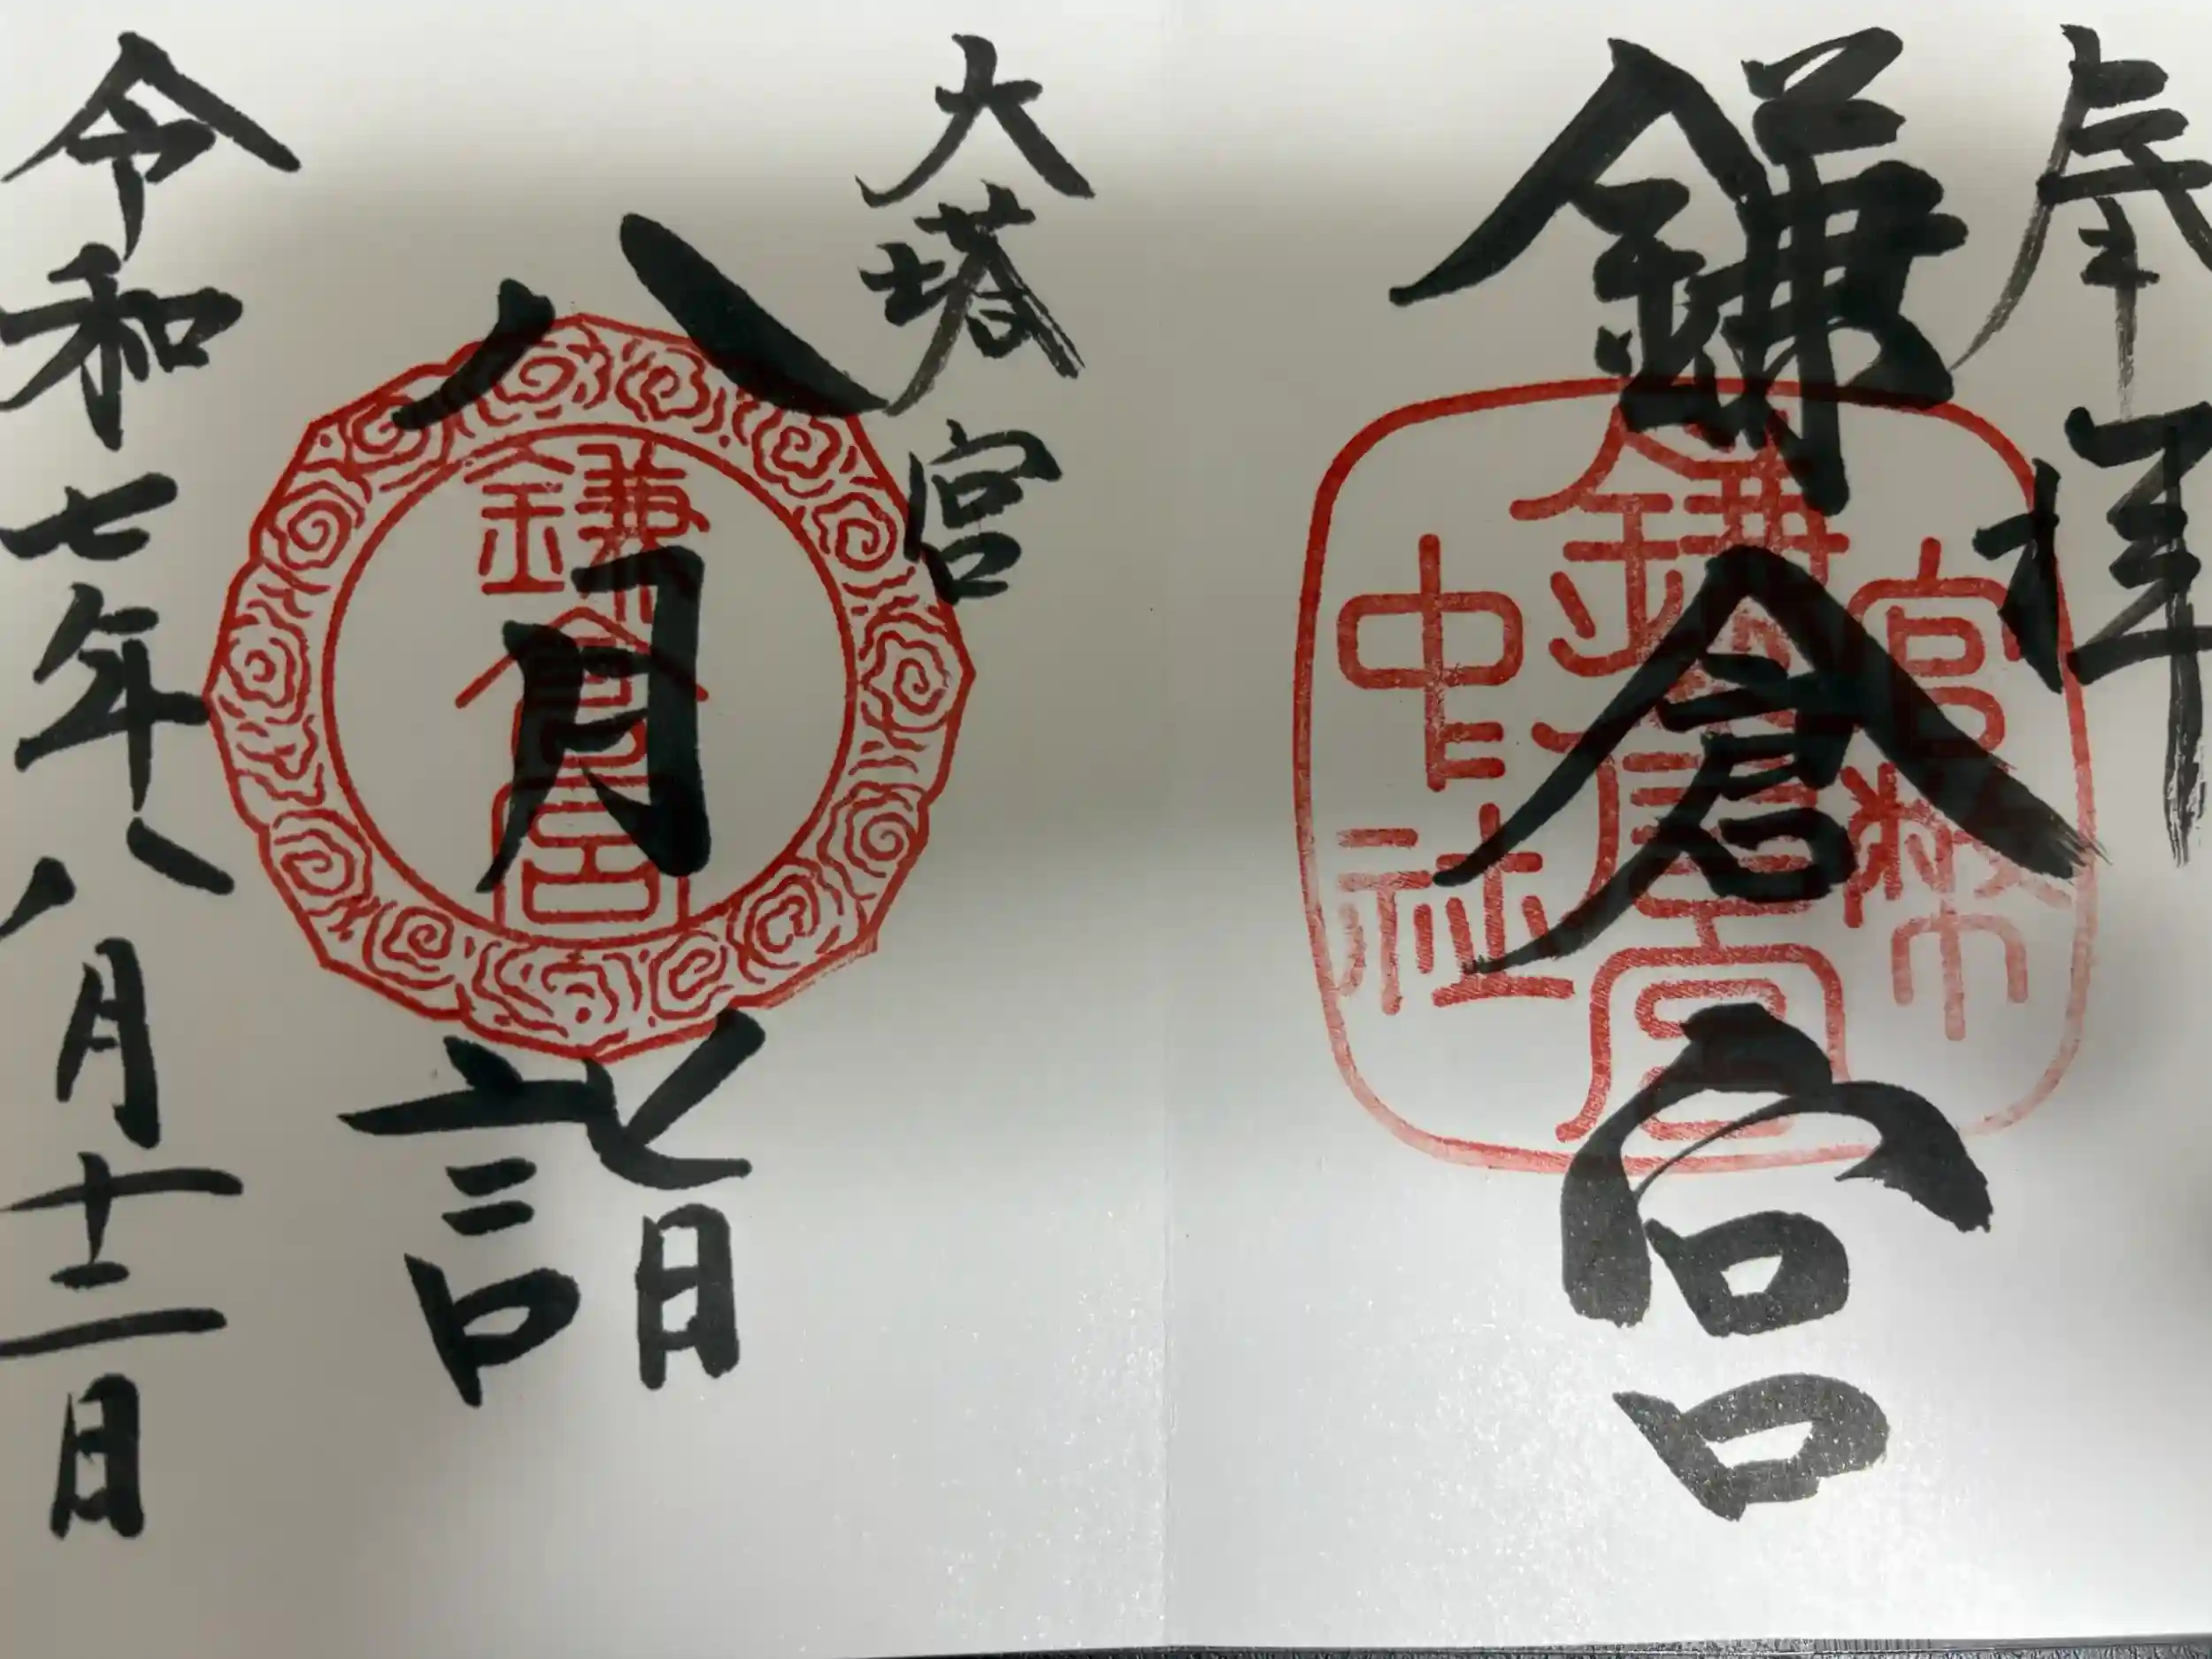 奉拝
鎌倉宮
官幣
鎌倉宮
中社
大塔宮
八月詣
鎌倉宮
令和七年八月十二日